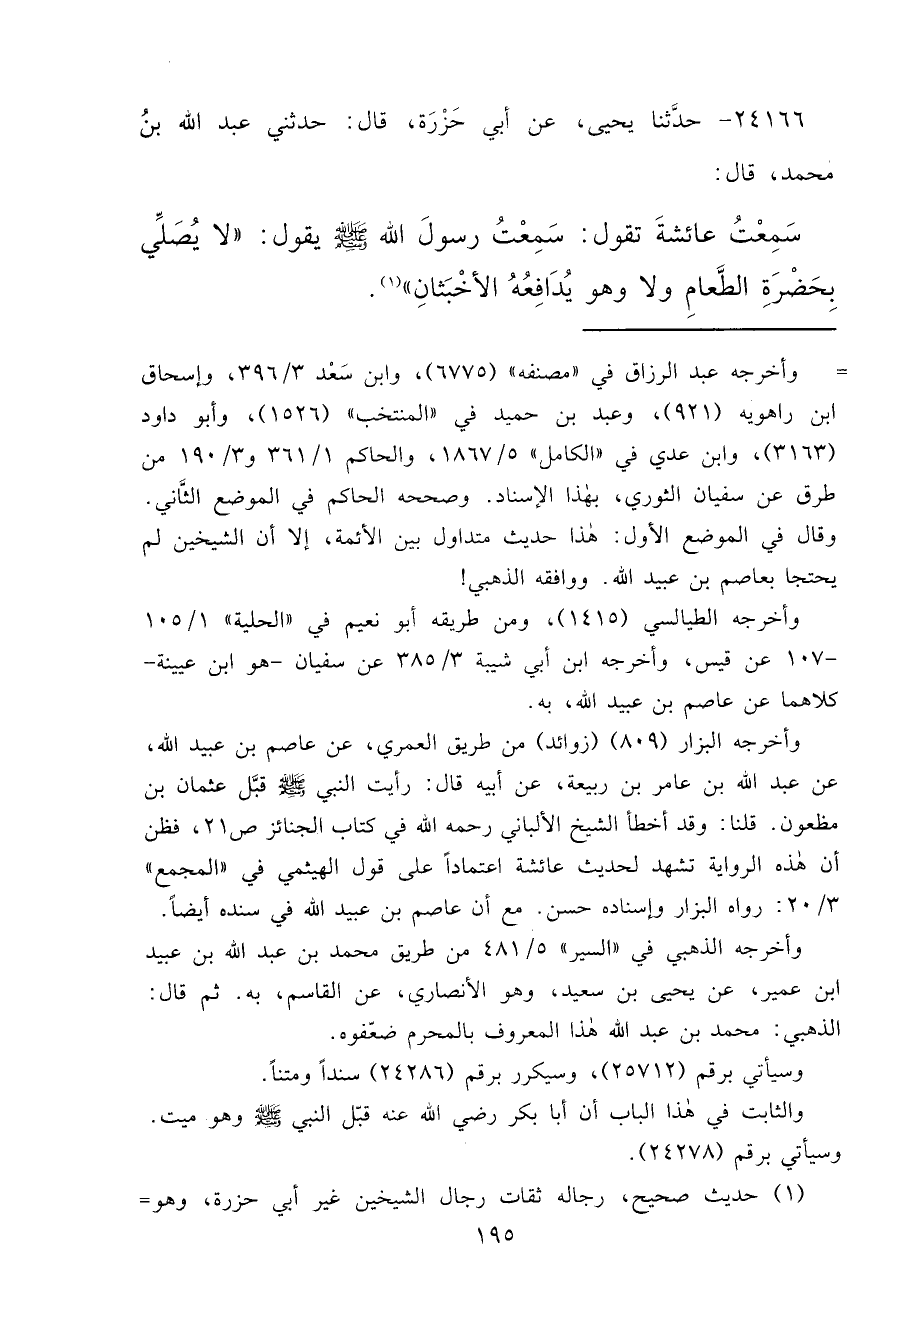 ٢٤١٦٦- حدَّثنا يحيى، عن أبي حَزْرَة، قال: حدثني عبد الله بنُ
محمد، قال:
سَمِعْتُ عائشةَ تقول: سَمِعْتُ رسولَ الله ﷺ يقول: «لا يُصَلِّي
بِحَضْرَةِ الطَّعامِ ولا وهو يُدَافِعُهُ الأخْبَثانِ»(١).
= وأخرجه عبد الرزاق في «مصنفه» (٦٧٧٥)، وابن سَعْد ٣٩٦/٣، وإسحاق
ابن راهويه (٩٢١)، وعبد بن حميد في «المنتخب» (١٥٢٦)، وأبو داود
(٣١٦٣)، وابن عدي في «الكامل» ١٨٦٧/٥، والحاكم ٣٦١/١ و١٩٠/٣ من
طرق عن سفيان الثوري، بهٰذا الإسناد. وصححه الحاكم في الموضع الثَّاني.
وقال في الموضع الأول: هٰذا حديث متداول بين الأئمة، إلا أن الشيخين لم
يحتجا بعاصم بن عبيد الله. ووافقه الذهبي!
وأخرجه الطيالسي (١٤١٥)، ومن طريقه أبو نعيم في «الحلية» ١٠٥/١
-١٠٧ عن قيس، وأخرجه ابن أبي شيبة ٣٨٥/٣ عن سفيان -هو ابن عيينة-
كلاهما عن عاصم بن عبيد الله، به.
وأخرجه البزار (٨٠٩) (زوائد) من طريق العمري، عن عاصم بن عبيد الله،
عن عبد الله بن عامر بن ربيعة، عن أبيه قال: رأيت النبي ﷺ قبَّل عثمان بن
مظعون. قلنا: وقد أخطأ الشيخ الألباني رحمه الله في كتاب الجنائز ص٢١، فظن
أن هٰذه الرواية تشهد لحديث عائشة اعتماداً على قول الهيثمي في «المجمع»
٢٠/٣: رواه البزار وإسناده حسن. مع أن عاصم بن عبيد الله في سنده أيضاً.
وأخرجه الذهبي في «السير» ٤٨١/٥ من طريق محمد بن عبد الله بن عبيد
ابن عمير، عن يحيى بن سعيد، وهو الأنصاري، عن القاسم، به. ثم قال:
الذهبي: محمد بن عبد الله هٰذا المعروف بالمحرم ضعّفوه.
وسيأتي برقم (٢٥٧١٢)، وسيكرر برقم (٢٤٢٨٦) سنداً ومتناً.
والثابت في هٰذا الباب أن أبا بكر رضي الله عنه قبّل النبي ﷺ وهو ميت.
وسيأتي برقم (٢٤٢٧٨).
(١) حديث صحيح، رجاله ثقات رجال الشيخين غير أبي حزرة، وهو=
١٩٥